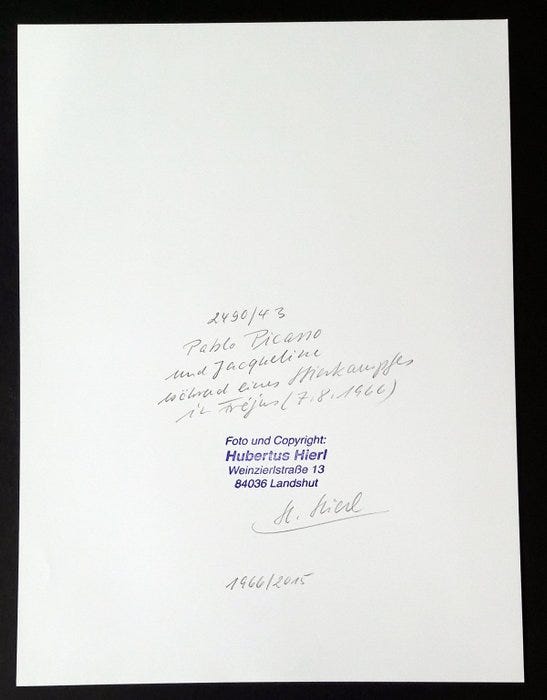 2490/43
Pablo Picasso
und Jacqueline
während eines Stierkampfes
in Fréjus (7.8.1966)
Foto und Copyright:
Hubertus Hierl
Weinzierlstraße 13
84036 Landshut
H. Hierl
1966/2015